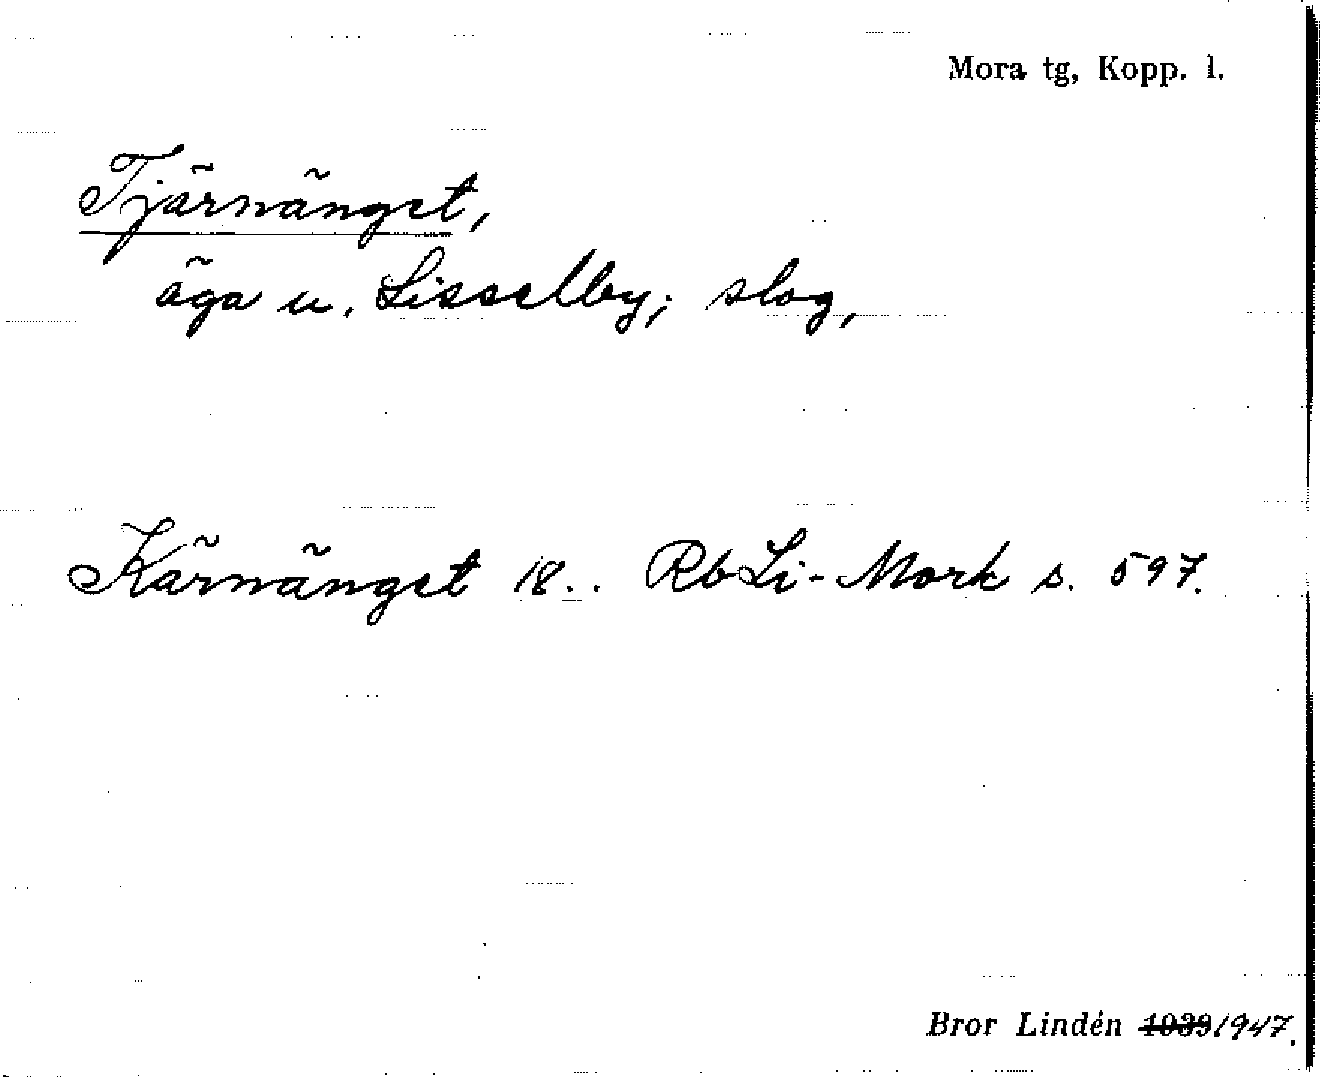 Mora tg, Kopp. l.
Tjärnänget,
äga u. Lisselby; slog,
Kärnänget 18.. Rb Li-Mork s. 597.
Bror Lindén 1939 1947.